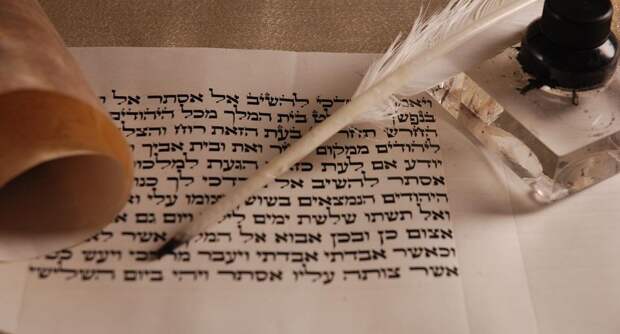 ויאמר להשיב אל אסתר אל
בנפשך בית המלך מכל היהודים
החרש בעת הזאת רוח
ליהודים ממקום ואת ובית אביך
יודע אם לעת הגעת
אסתר להשיב אל לך
היהודים הנמצאים עלי
ואל תשתו שלשת ימים ויום גם
אצום כן ובכן אבוא אל המלך אשר
וכאשר אבדתי אבדתי ויעבר ויעש
אשר צותה עליו אסתר ויהי ביום השלישי